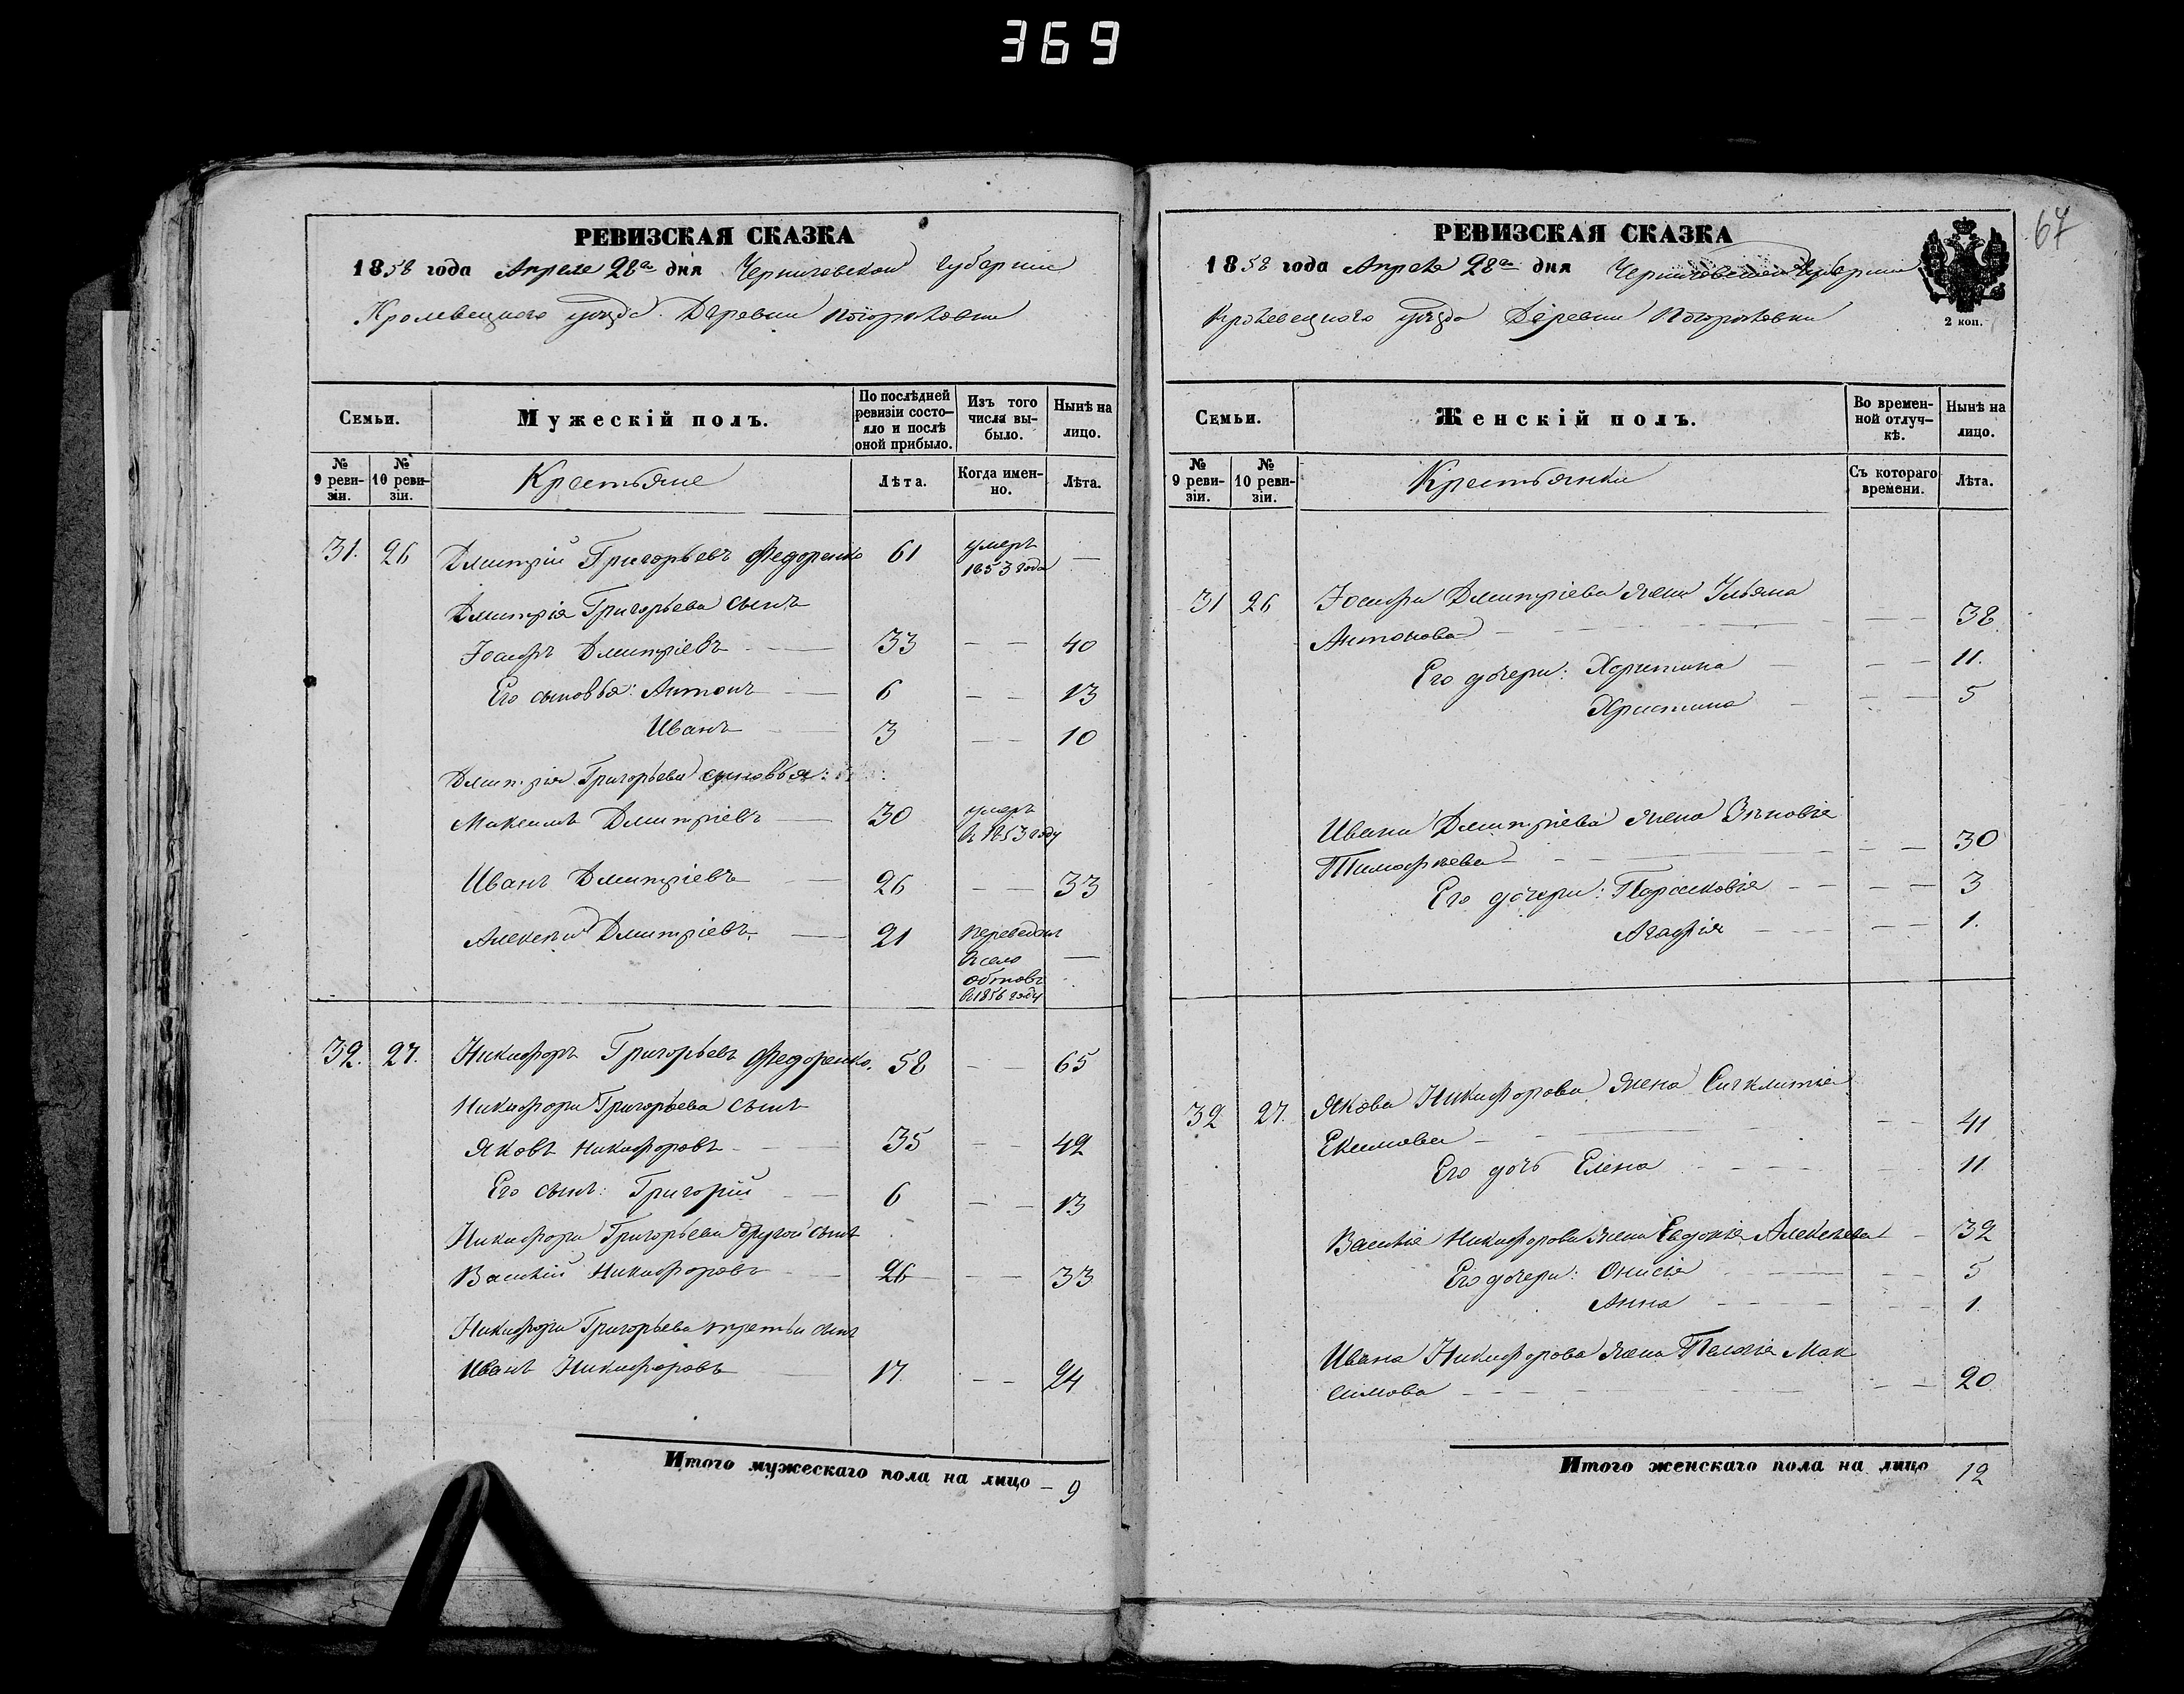 369
РЕВИЗСКАЯ СКАЗКА
1858 года Апреля 28го дня Черниговской губернии
Кролевецкого уезда Деревни Погореловки
Семьи.
Мужескій полъ.
По послѣдней ревизіи состо-
яло и послѣ оной прибыло.
Изъ того числа вы-
было.
Нынѣ на лицо.
№ 9 реви-
зіи.
№ 10 реви-
зіи.
Крестьяне
Лѣта.
Когда имен-
но.
Лѣта.
31. 26 Дмитрій Григорьевъ Федоренко 61 умеръ 1853 года —
Дмитрія Григорьева сынъ
Іосифъ Дмитріевъ 33 — — 40
Его сыновья: Антонъ 6 — — 13
Иванъ 3 — — 10
Дмитрія Григорьева сыновья:
Максимъ Дмитріевъ 30 умеръ в 1853 году
Иванъ Дмитріевъ 26 — — 33
Алексей Дмитріевъ 21 переведенъ
в село —
обтовъ
в 1856 году
32. 27. Никифоръ Григорьевъ Федоренко. 58 — — 65
Никифора Григорьева сынъ
Яковъ Никифоровъ 35 — — 42
Его сынъ: Григорій 6 — — 13
Никифора Григорьева другой сынъ
Василій Никифоровъ 26 — — 33
Никифора Григорьева третьи сынъ
Иванъ Никифоровъ 17 — — 24
Итого мужескаго пола на лицо — 9
67
РЕВИЗСКАЯ СКАЗКА
1858 года Апреля 28го дня Черниговской губернии
Кролевецкого уезда Деревни Погореловки
2 коп.
Семьи.
Женскій полъ.
Во времен-
ной отлуч-
кѣ.
Нынѣ на лицо.
№ 9 реви-
зіи.
№ 10 реви-
зіи.
Крестьянки
Съ котораго времени.
Лѣта.
31 26 Іосифа Дмитріева жена Ульяна
Антонова — — 38
Его дочери: Харитина — — 11.
Христина — — 5
Ивана Дмитріева жена Зѣновія
Тимофѣева — — 30
Его дочери: Парасковія — — 3
Агафія — — 1.
32 27. Якова Никифорова жена Сигклитія
Екимова — — 41
Его дочь Елена 11
Василія Никифорова жена Евдокія Алексѣева — 32
Его дочери: Онисія — — 5
Анна — — 1.
Ивана Никифорова жена Пелагія Мак
симова — — 20
Итого женскаго пола на лицо 12